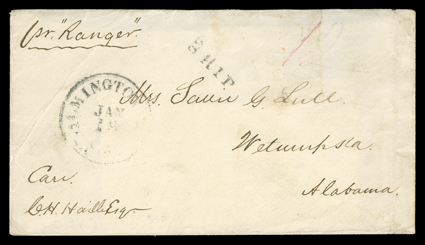 pr. "Ranger"
SHIP
WILMINGTON
JAN
Mrs. Sallie G. Lull
Wetumpka
Alabama.
Care
C.H. Haille Esqr